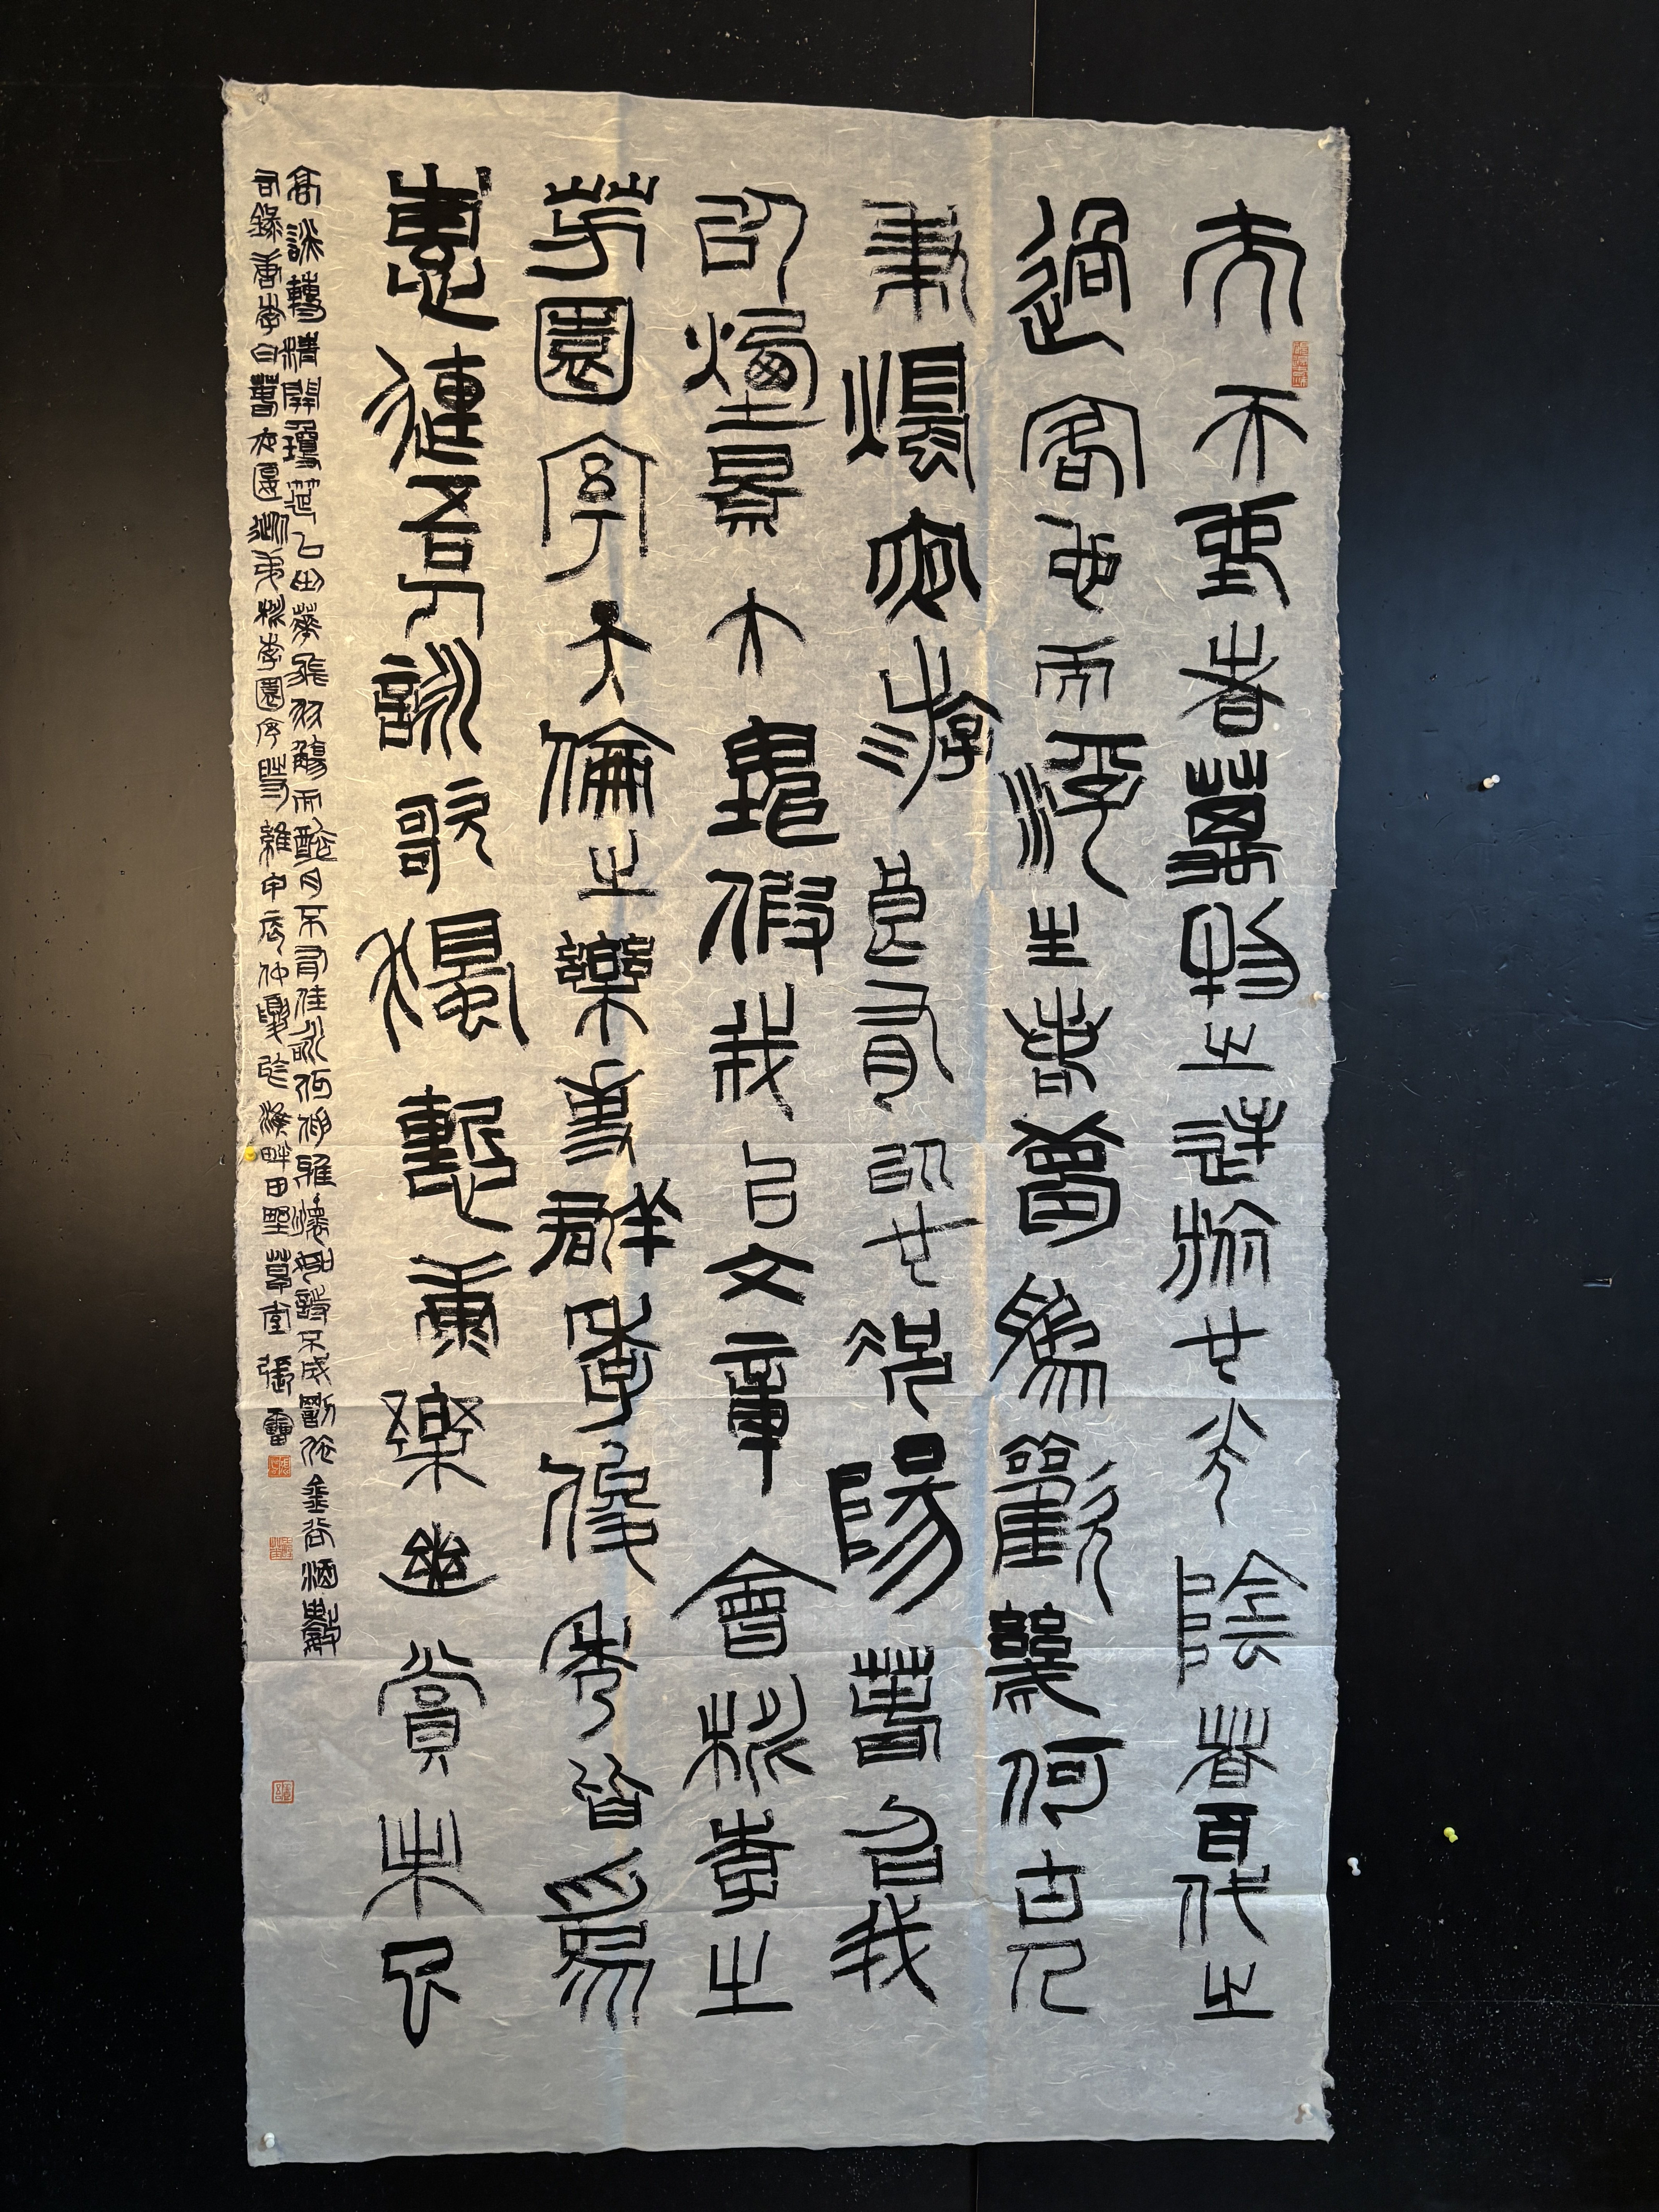 夫天地者萬物之逆旅也光陰者百代之
過客也而浮生若夢為歡幾何古人
秉燭夜游良有以也況陽春召我
以煙景大塊假我以文章會桃李之
芳園序天倫之樂事群季俊秀皆為
惠連吾人詠歌獨慚康樂幽賞未已
高談轉清開瓊筵以坐花飛羽觴而醉月不有佳詠何伸雅懷如詩不成罰依金谷酒數
右錄唐李白春夜宴從弟桃李園序時維甲辰仲夏於畔田野草堂張雷